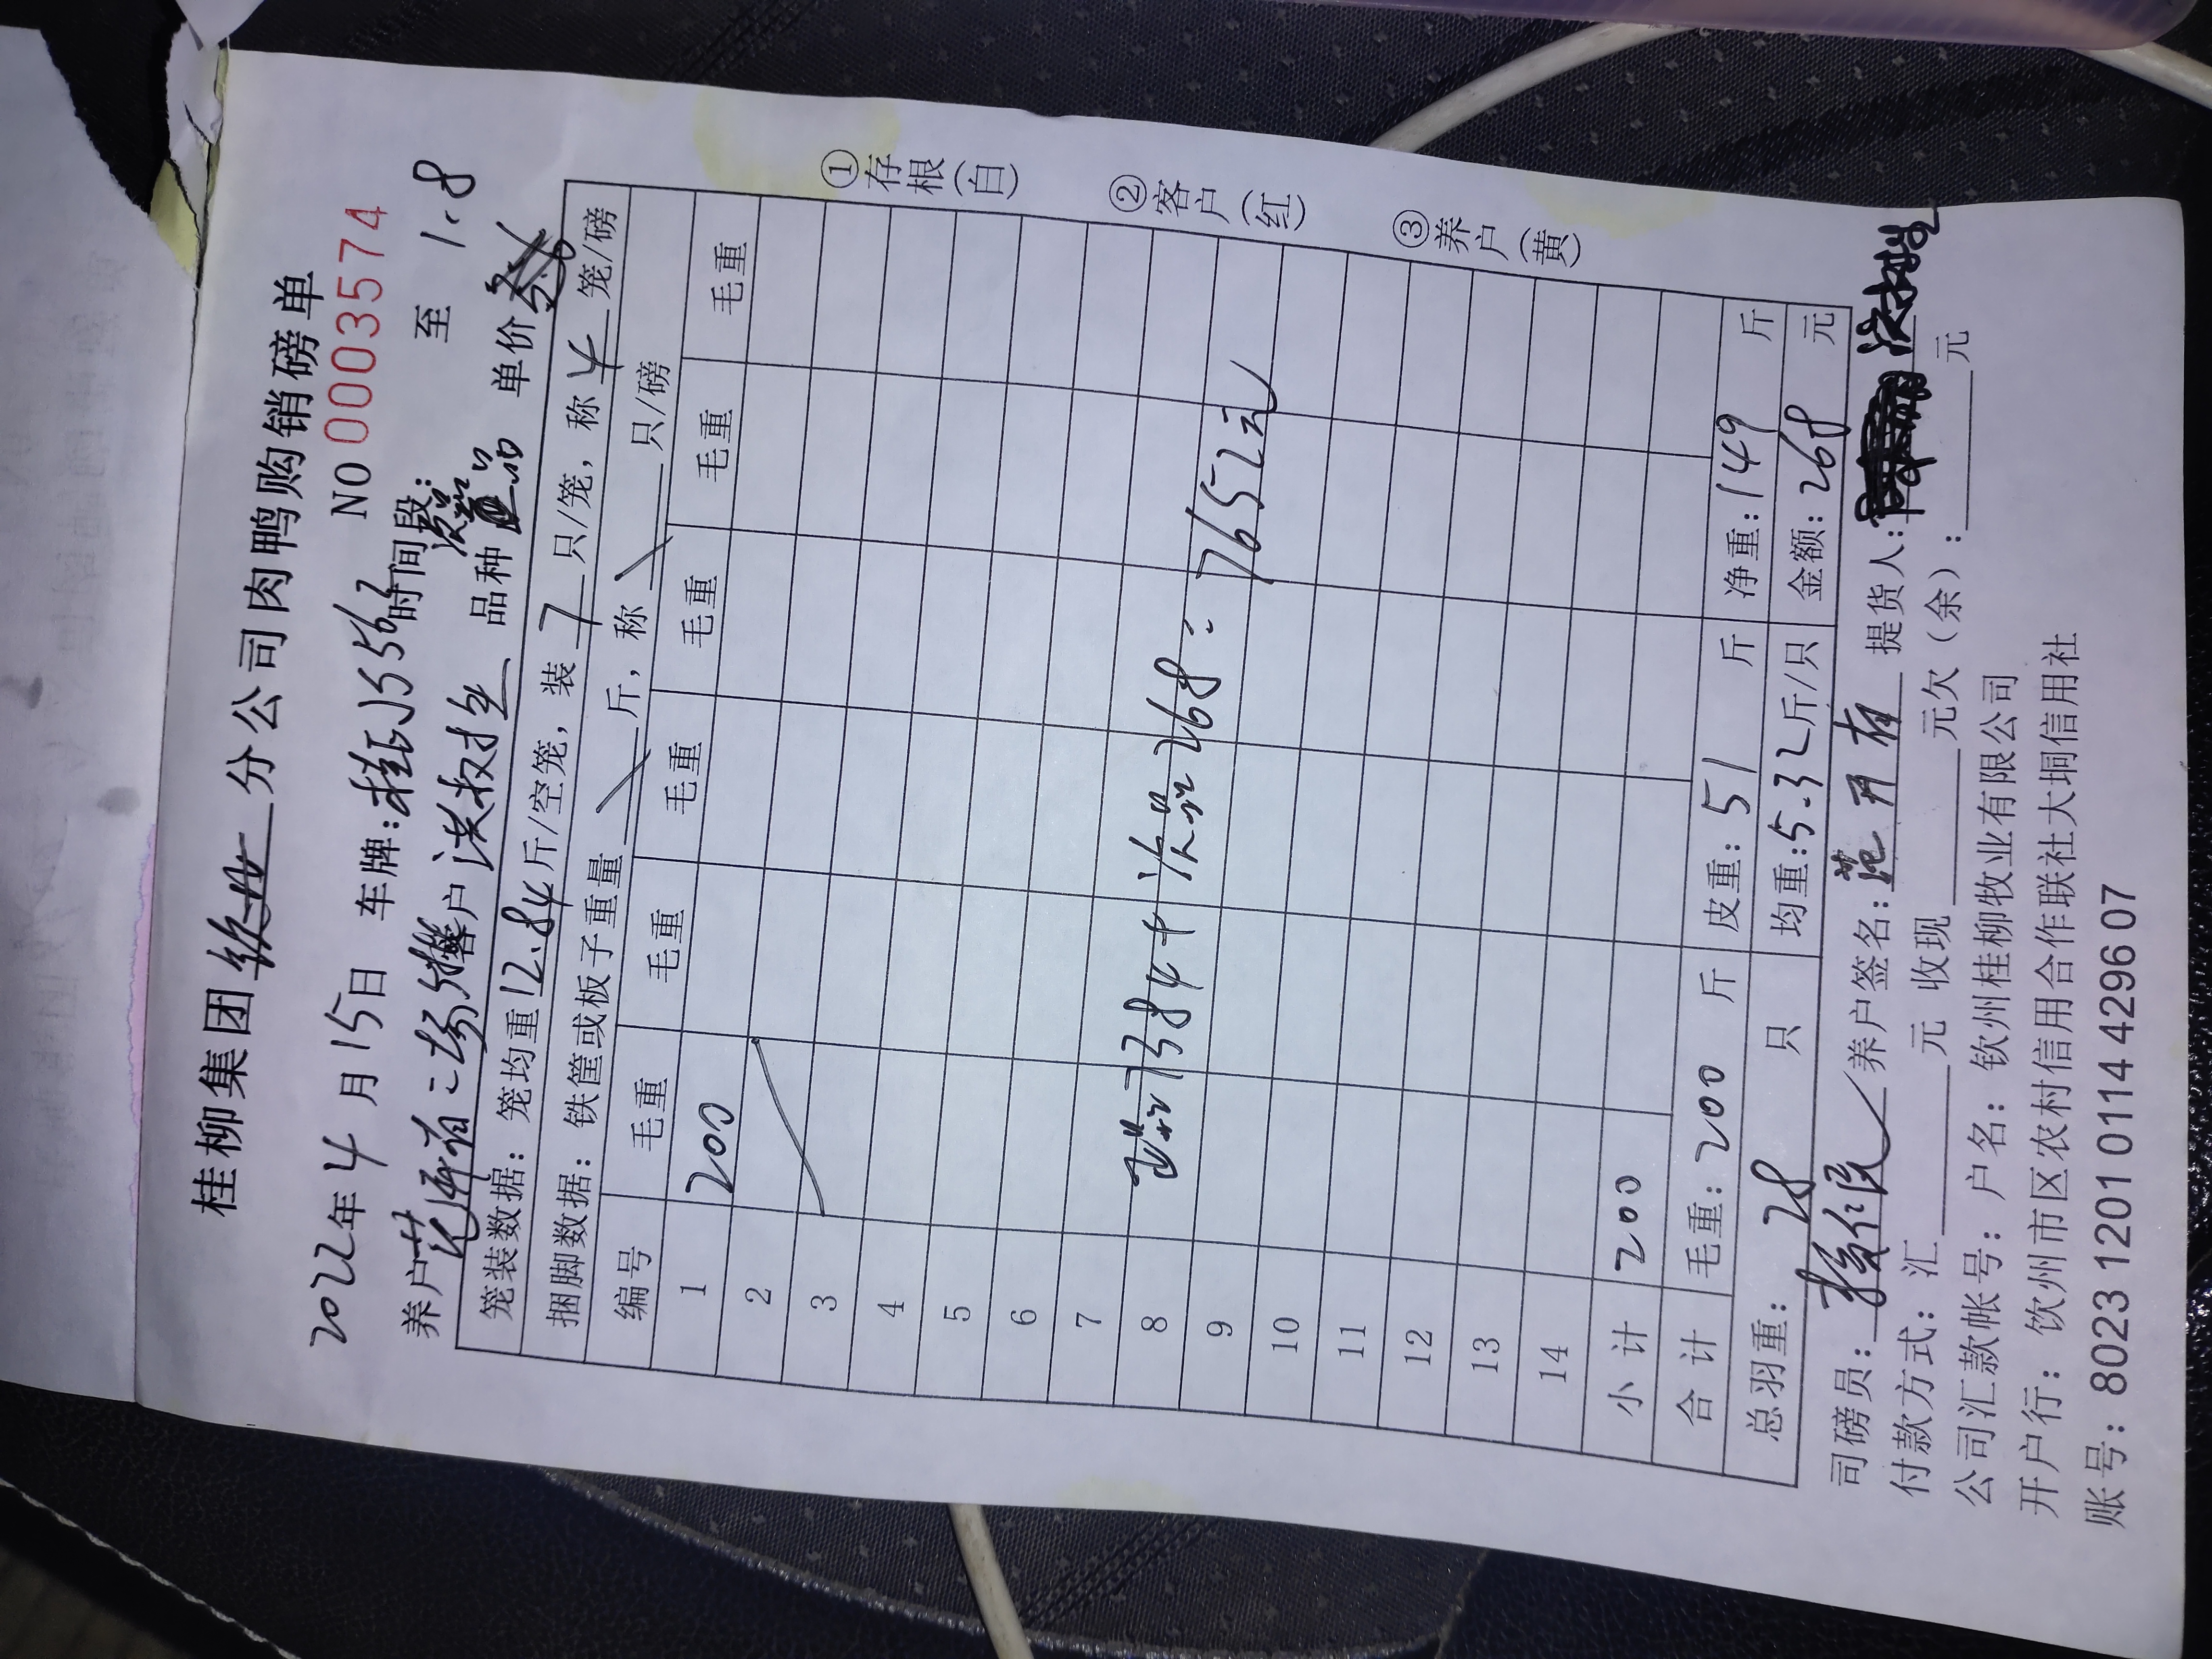 桂柳集团 分公司肉鸭购销磅单
NO 0003574
2022年4月15日 车牌:桂 时间段: 至 1.8
养户 二场 客户 洪权 品种 次品 单价
笼装数据:笼均重12.84斤/空笼,装 7 只/笼,称 4 笼/磅
捆脚数据:铁筐或板子重量 / 斤,称 / 只/磅
编号 毛重 毛重 毛重 毛重 毛重 毛重
1 200
2
3
4
5
6
7
8 正品7384+次品268=
9 7652元
10
11
12
13
14
小计 200
合计 毛重:200 斤 皮重:51 斤 净重:149 斤
总羽重:28 只 均重:5.32斤/只 金额:268 元
司磅员: 养户签名:范开存 提货人:
付款方式:汇 元 收现 元欠(余): 元
公司汇款帐号:户名:钦州桂柳牧业有限公司
开户行:钦州市区农村信用合作联社大垌信用社
账号:8023 1201 0114 4296 07
①存根(白)
②客户(红)
③养户(黄)